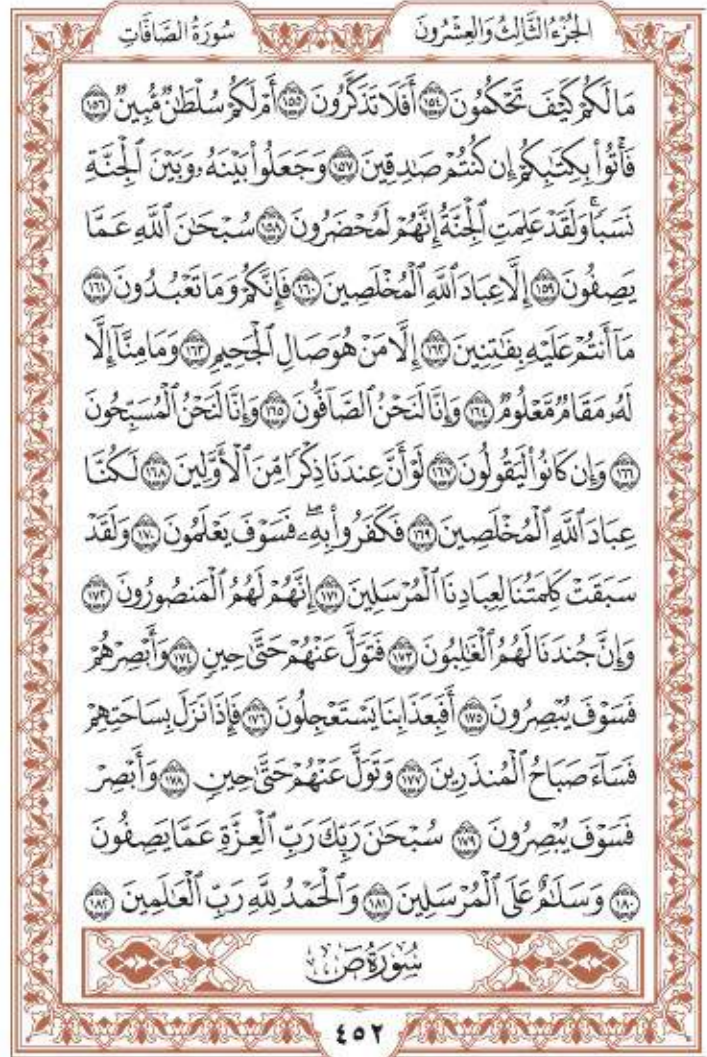 الجُزْءُ الثَّالِثُ وَالعِشْرُونَ
سُورَةُ الصَّافَّاتِ
مَا لَكُمْ كَيْفَ تَحْكُمُونَ ١٥٤ أَفَلَا تَذَكَّرُونَ ١٥٥ أَمْ لَكُمْ سُلْطَٰنٌ مُّبِينٌ ١٥٦
فَأْتُوا۟ بِكِتَٰبِكُمْ إِن كُنتُمْ صَٰدِقِينَ ١٥٧ وَجَعَلُوا۟ بَيْنَهُۥ وَبَيْنَ ٱلْجِنَّةِ
نَسَبًا ۚ وَلَقَدْ عَلِمَتِ ٱلْجِنَّةُ إِنَّهُمْ لَمُحْضَرُونَ ١٥٨ سُبْحَٰنَ ٱللَّهِ عَمَّا
يَصِفُونَ ١٥٩ إِلَّا عِبَادَ ٱللَّهِ ٱلْمُخْلَصِينَ ١٦٠ فَإِنَّكُمْ وَمَا تَعْبُدُونَ ١٦١
مَآ أَنتُمْ عَلَيْهِ بِفَٰتِنِينَ ١٦٢ إِلَّا مَنْ هُوَ صَالِ ٱلْجَحِيمِ ١٦٣ وَمَا مِنَّآ إِلَّا
لَهُۥ مَقَامٌ مَّعْلُومٌ ١٦٤ وَإِنَّا لَنَحْنُ ٱلصَّآفُّونَ ١٦٥ وَإِنَّا لَنَحْنُ ٱلْمُسَبِّحُونَ
١٦٦ وَإِن كَانُوا۟ لَيَقُولُونَ ١٦٧ لَوْ أَنَّ عِندَنَا ذِكْرًا مِّنَ ٱلْأَوَّلِينَ ١٦٨ لَكُنَّا
عِبَادَ ٱللَّهِ ٱلْمُخْلَصِينَ ١٦٩ فَكَفَرُوا۟ بِهِۦ ۖ فَسَوْفَ يَعْلَمُونَ ١٧٠ وَلَقَدْ
سَبَقَتْ كَلِمَتُنَا لِعِبَادِنَا ٱلْمُرْسَلِينَ ١٧١ إِنَّهُمْ لَهُمُ ٱلْمَنصُورُونَ ١٧٢
وَإِنَّ جُندَنَا لَهُمُ ٱلْغَٰلِبُونَ ١٧٣ فَتَوَلَّ عَنْهُمْ حَتَّىٰ حِينٍ ١٧٤ وَأَبْصِرْهُمْ
فَسَوْفَ يُبْصِرُونَ ١٧٥ أَفَبِعَذَابِنَا يَسْتَعْجِلُونَ ١٧٦ فَإِذَا نَزَلَ بِسَاحَتِهِمْ
فَسَآءَ صَبَاحُ ٱلْمُنذَرِينَ ١٧٧ وَتَوَلَّ عَنْهُمْ حَتَّىٰ حِينٍ ١٧٨ وَأَبْصِرْ
فَسَوْفَ يُبْصِرُونَ ١٧٩ سُبْحَٰنَ رَبِّكَ رَبِّ ٱلْعِزَّةِ عَمَّا يَصِفُونَ
١٨٠ وَسَلَٰمٌ عَلَى ٱلْمُرْسَلِينَ ١٨١ وَٱلْحَمْدُ لِلَّهِ رَبِّ ٱلْعَٰلَمِينَ ١٨٢
سُورَةُ صٓ
٤٥٢